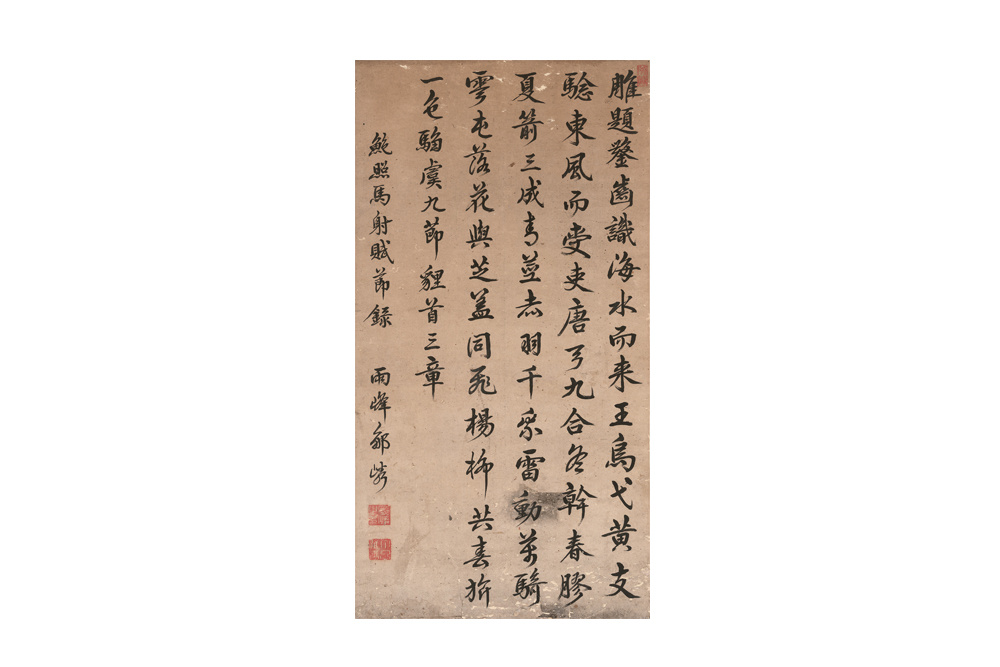 雕題鑿齒識海水而来王烏弋黄支
驗東風而受吏唐弓九合冬幹春膠
夏箭三成青莖赤羽千乘雷動萬騎
雲屯落花與芝蓋同飛楊柳共春旂
一色騶虞九節貍首三章
鮑照馬射賦節録 雨峰鄒